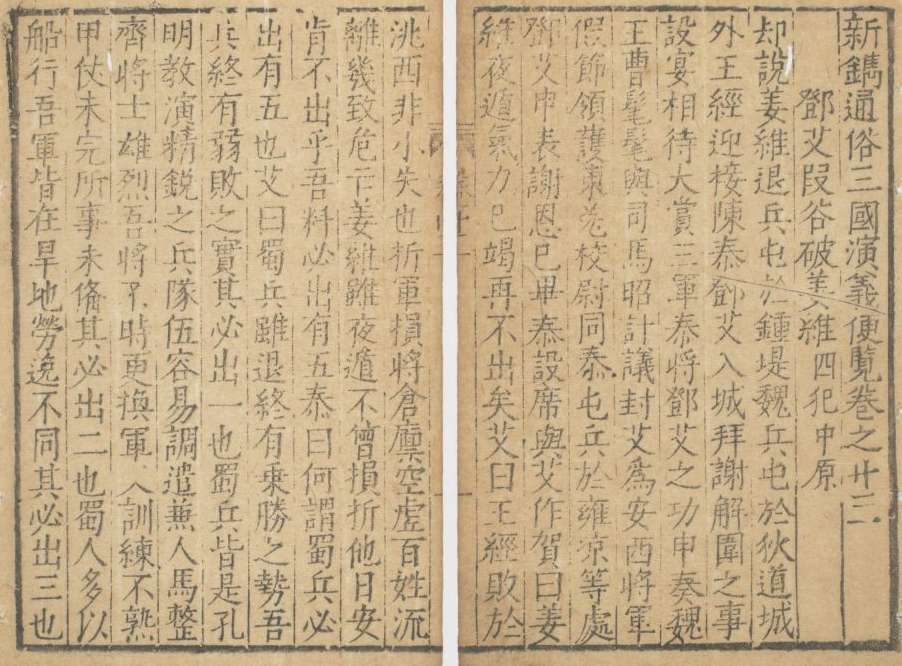 新鐫通俗三國演義便覽卷之廿三
鄧艾段谷破姜維四犯中原
却說姜維退兵屯於鍾堤魏兵屯於狄道城
外王經迎接陳泰鄧艾入城拜謝解圍之事
設宴相待大賞三軍泰將鄧艾之功申奏魏
王曹髦髦與司馬昭計議封艾爲安西將軍
假節領護羗校尉同泰屯兵於雍凉等處
鄧艾申表謝恩已畢泰設席與艾作賀曰姜
維夜遁氣力已竭再不出矣艾曰王經敗於
洮西非小失也折軍損將倉廩空虛百姓流
離幾致危亡姜維雖夜遁不曾損折他日安
肯不出乎吾料必出有五泰曰何謂蜀兵必
出有五也艾曰蜀兵雖退終有乗勝之勢吾
兵終有弱敗之實其必出一也蜀兵皆是孔
明教演精銳之兵隊伍容易調遣兼人馬整
齊將士雄烈吾將不時更換軍人訓練不熟
甲仗未完所事未俻其必出二也蜀人多以
船行吾軍皆在旱地勞逸不同其必出三也